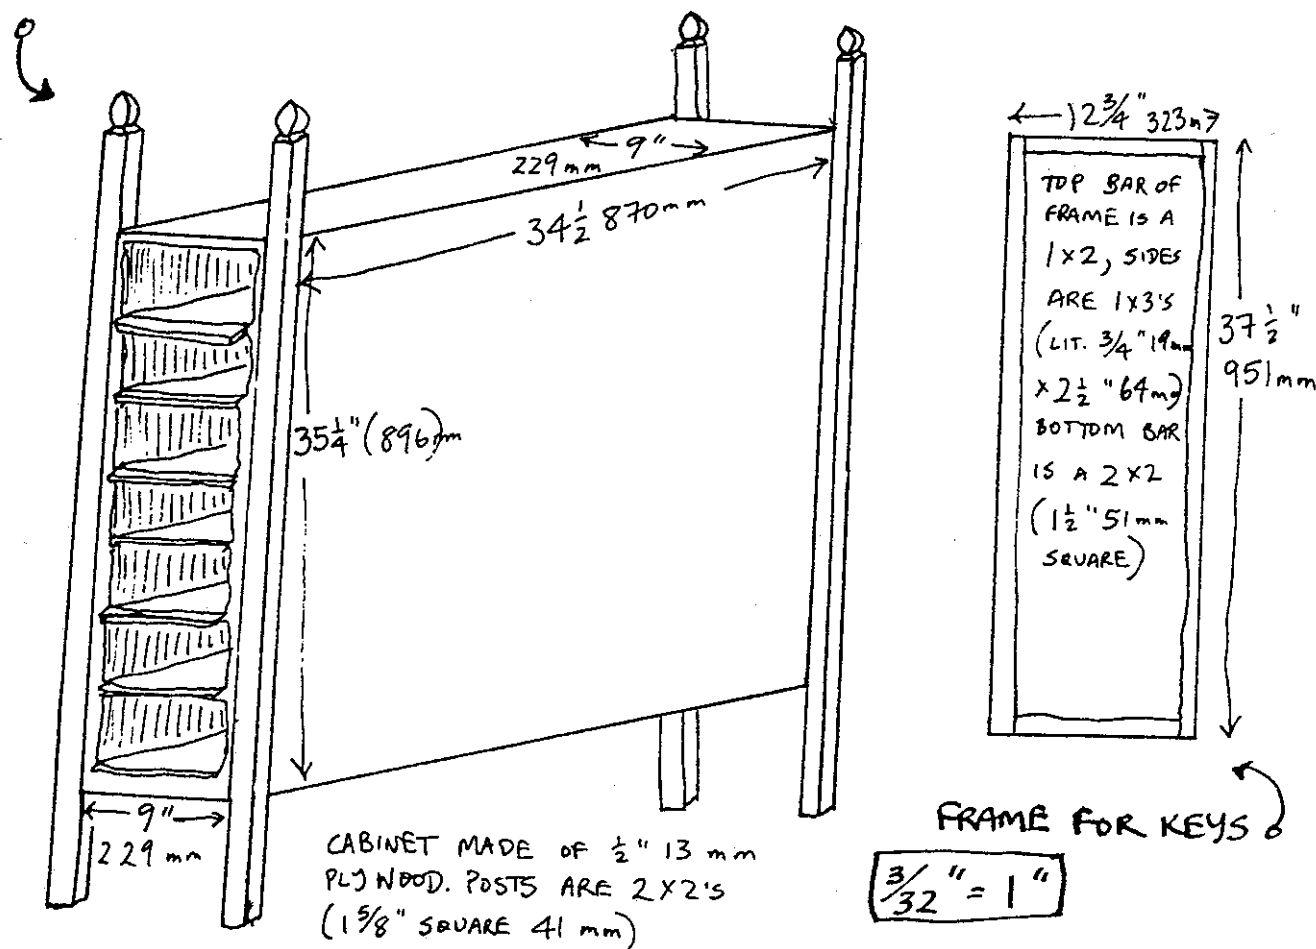 9"
229 mm
34 1/2 870 mm
35 1/4" (896) mm
9"
229 mm
CABINET MADE OF 1/2" 13 mm
PLYWOOD. POSTS ARE 2X2'S
(1 5/8" SQUARE 41 mm)
12 3/4" 323m
TOP BAR OF
FRAME IS A
1X2, SIDES
ARE 1X3'S
(LIT. 3/4" 19mm
X 2 1/2 "64mm)
BOTTOM BAR
IS A 2X2
(1 1/2" 51mm
SQUARE)
37 1/2"
951mm
FRAME FOR KEYS
3/32" = 1"